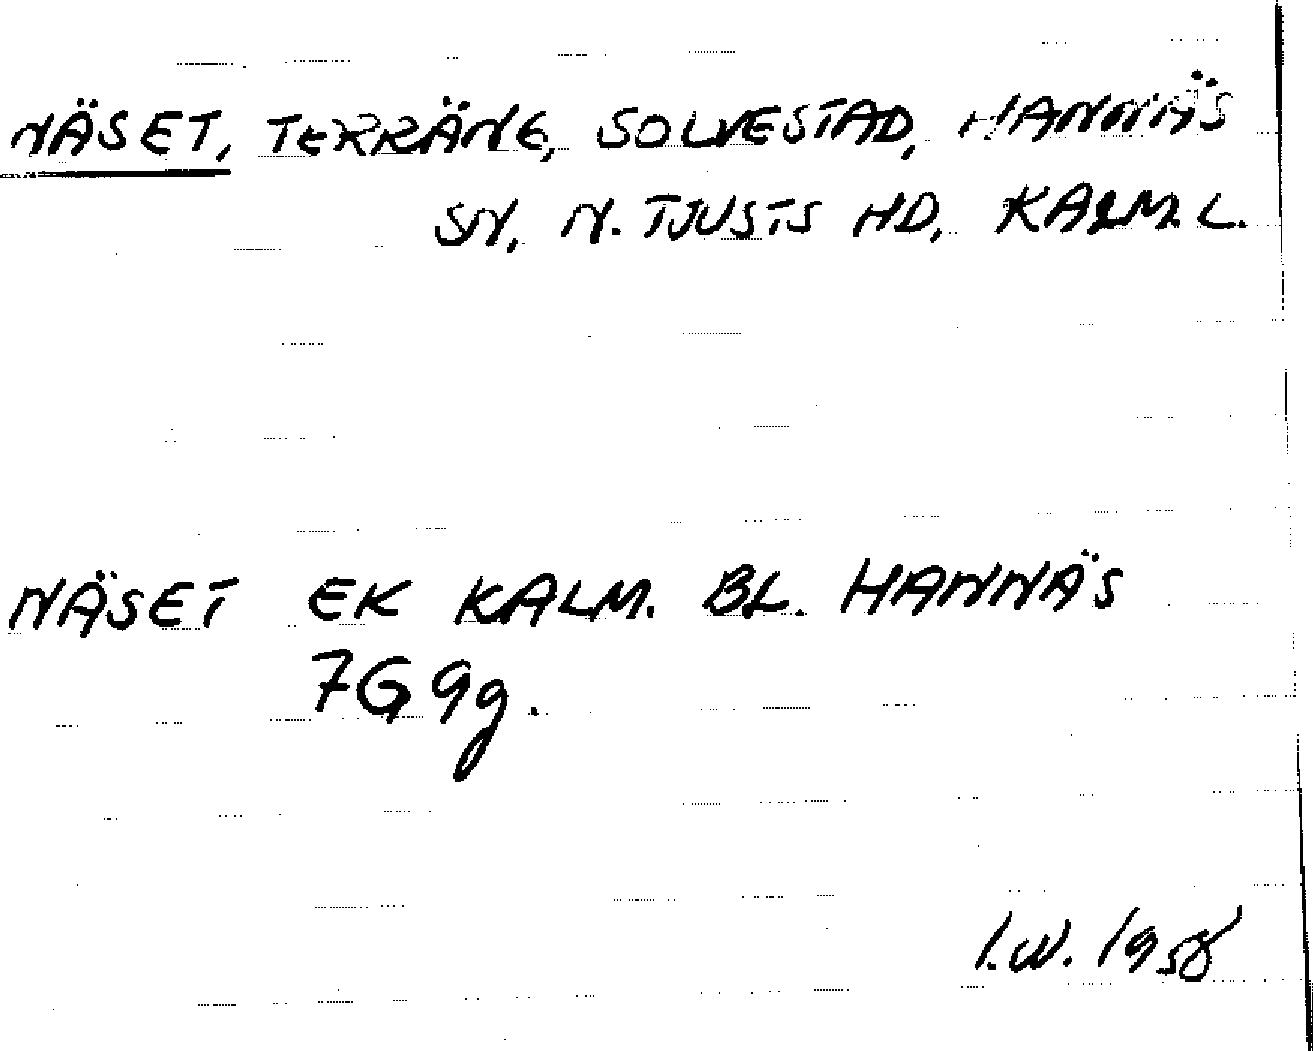 NÄSET, TERRÄNG, SOLVESTAD, HANNÄS
SN, N. TJUSTS HD, KALM. L.
NÄSET EK KALM. BL. HANNÄS
7G 9g.
I.W. 1958